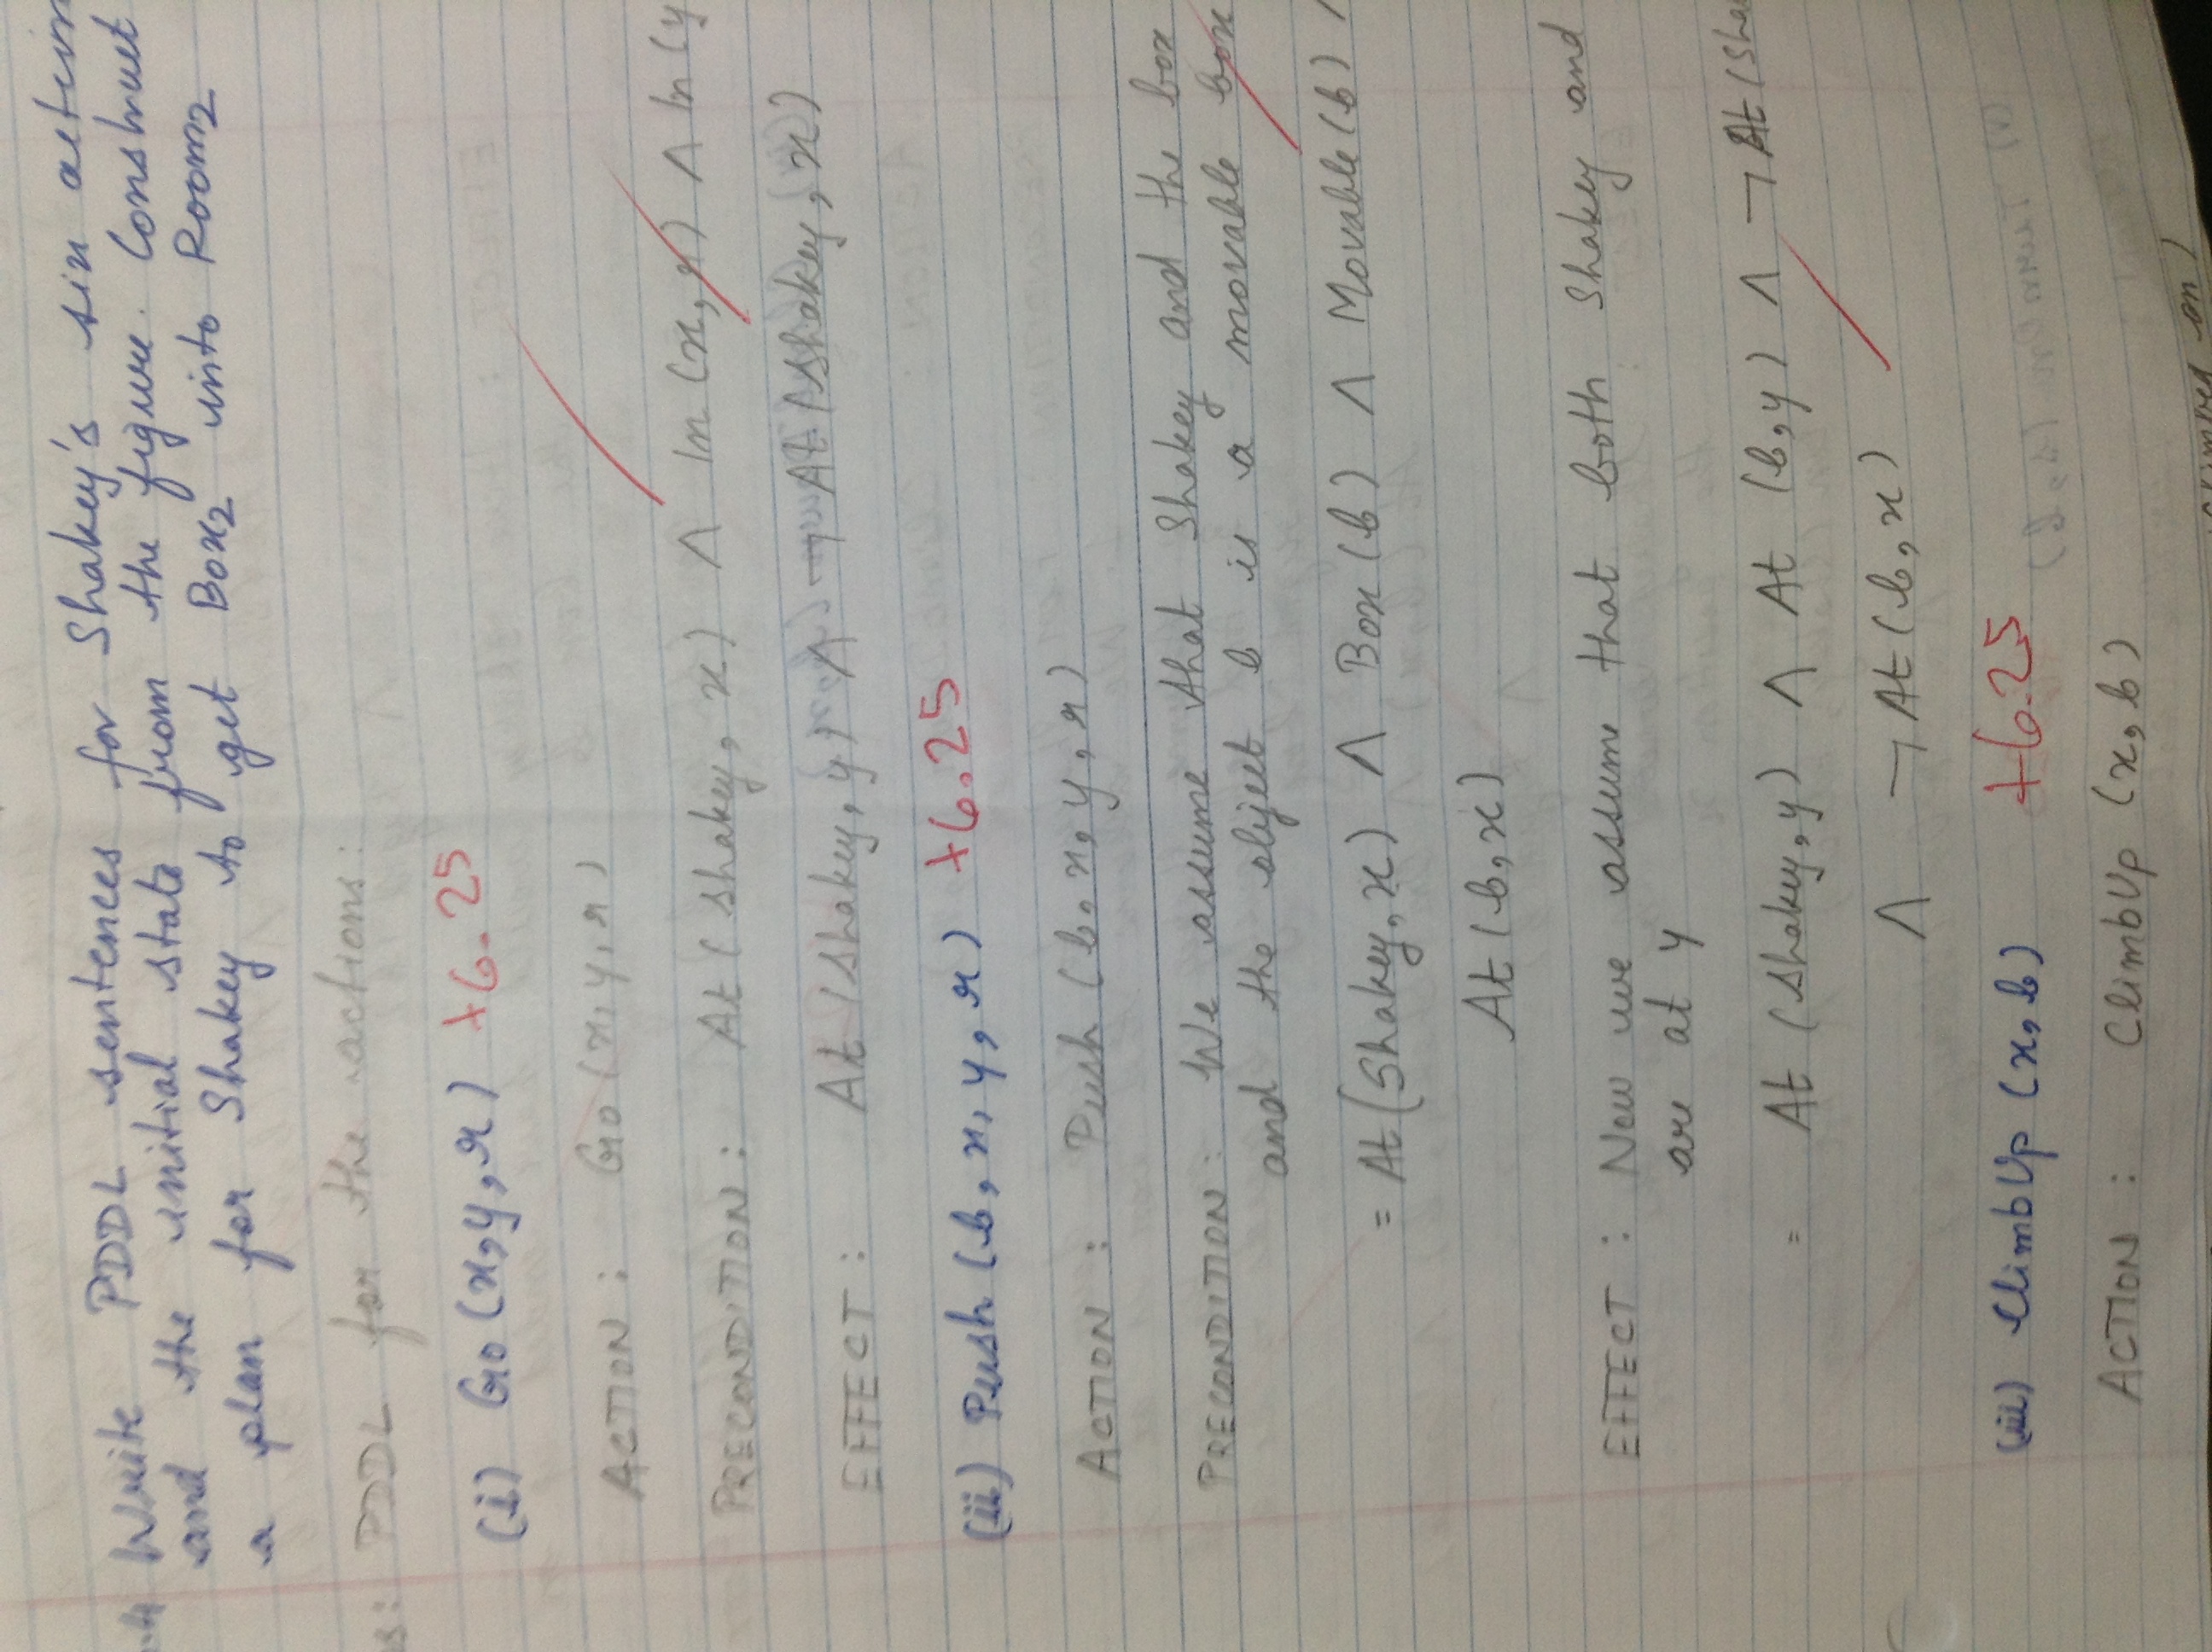 Write PDDL sentences for Shakey's six action
and the initial state from the figure. Construct
a plan for Shakey to get Box2 into Room2
PDDL for the actions:
(i) Go (x,y,r) +6.25
ACTION: Go (x,y,r)
PRECONDITION: At (Shakey, x) ∧ In (x,r) ∧ In (y
EFFECT: At (Shakey, y) ∧ ¬ At (Shakey, x)
(ii) Push (b, x, y, r) +6.25
ACTION: Push (b, x, y, r)
PRECONDITION: We assume that Shakey and the box
and the object b is a movable box
= At (Shakey, x) ∧ Box (b) ∧ Movable (b) ∧
At (b, x)
EFFECT: Now we assume that both Shakey and
are at y
= At (Shakey, y) ∧ At (b, y) ∧ ¬ At (Sha
∧ ¬ At (b, x)
(iii) ClimbUp (x, b) +6.25
ACTION: ClimbUp (x, b)